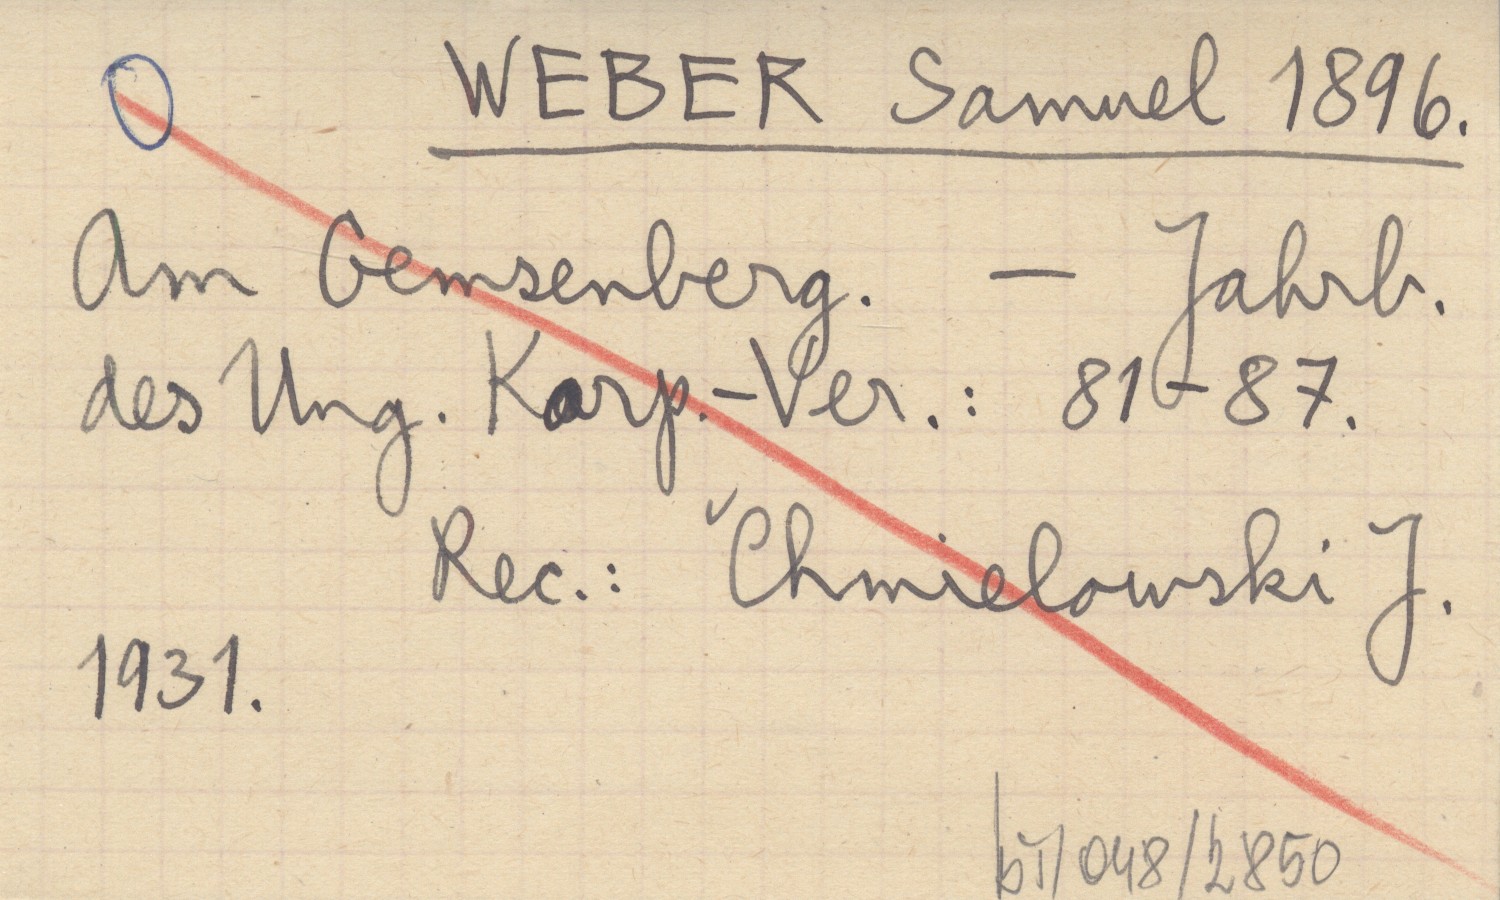 WEBER Samuel 1896.
Am Gemsenberg. — Jahrb.
des Ung. Karp.-Ver.: 81-87.
Rec.: Chmielowski J.
1931.
bT/048/2850